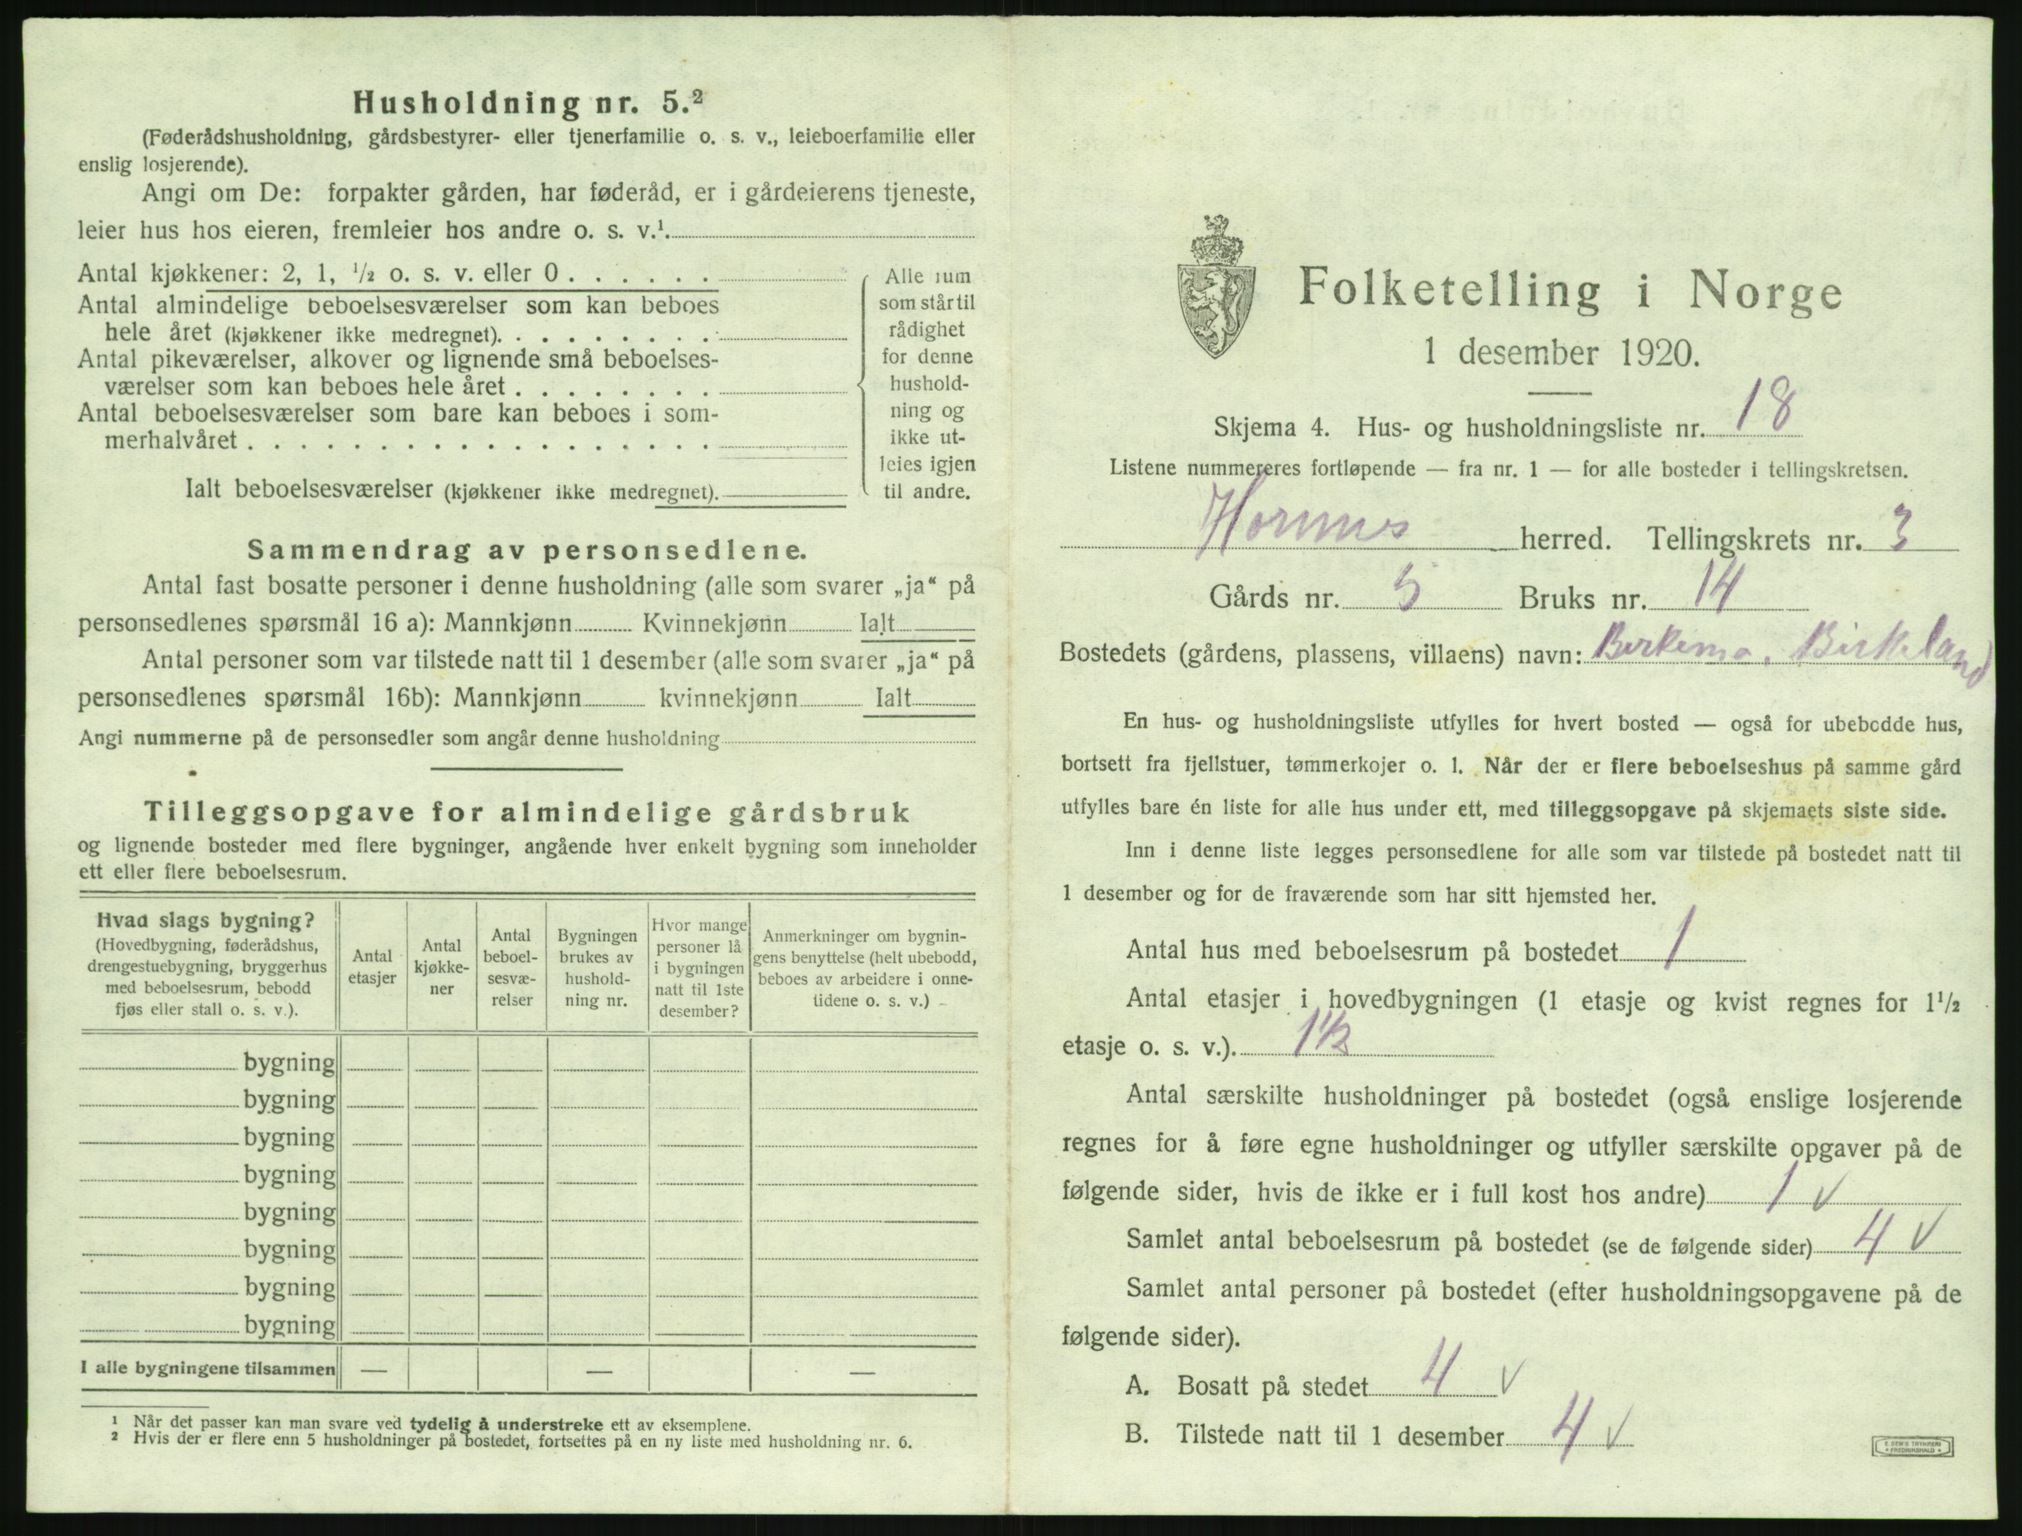 Husholdning nr. 5.²
(Føderådshusholdning, gårdsbestyrer- eller tjenerfamilie o. s. v., leieboerfamilie eller
enslig losjerende).
Angi om De: forpakter gården, har føderåd, er i gårdeierens tjeneste,
leier hus hos eieren, fremleier hos andre o. s. v.¹.
Antal kjøkkener: 2, 1, ½ o. s. v. eller 0 . . . . . .
Antal almindelige beboelsesværelser som kan beboes
hele året (kjøkkener ikke medregnet). . . . . . . . .
Antal pikeværelser, alkover og lignende små beboelses-
værelser som kan beboes hele året . . . . . . . .
Antal beboelsesværelser som bare kan beboes i som-
merhalvåret . . . . . . . . . . . . . . . . . .
Ialt beboelsesværelser (kjøkkener ikke medregnet).
Alle rum
som står til
rådighet
for denne
hushold-
ning og
ikke ut-
leies igjen
til andre.
Sammendrag av personsedlene.
Antal fast bosatte personer i denne husholdning (alle som svarer „ja“ på
personsedlenes spørsmål 16 a): Mannkjønn Kvinnekjønn Ialt
Antal personer som var tilstede natt til 1 desember (alle som svarer „ja“ på
personsedlenes spørsmål 16b): Mannkjønn kvinnekjønn Ialt
Angi nummerne på de personsedler som angår denne husholdning
Tilleggsopgave for almindelige gårdsbruk
og lignende bosteder med flere bygninger, angående hver enkelt bygning som inneholder
ett eller flere beboelsesrum.
Hvad slags bygning?
(Hovedbygning, føderådshus,
drengestuebygning, bryggerhus
med beboelsesrum, bebodd
fjøs eller stall o. s. v.).
Antal
etasjer
Antal
kjøkke-
ner
Antal
beboel-
sesvæ-
relser
Bygningen
brukes av
hushold-
ning nr.
Hvor mange
personer lå
i bygningen
natt til 1ste
desember?
Anmerkninger om bygnin-
gens benyttelse (helt ubebodd,
beboes av arbeidere i onne-
tidene o. s. v.)
bygning
bygning
bygning
bygning
bygning
bygning
bygning
bygning
I alle bygningene tilsammen — — —
¹ Når det passer kan man svare ved tydelig å understreke ett av eksemplene.
² Hvis der er flere enn 5 husholdninger på bostedet, fortsettes på en ny liste med husholdning nr. 6.
Folketelling i Norge
1 desember 1920.
Skjema 4. Hus- og husholdningsliste nr. 18
Listene nummereres fortløpende — fra nr. 1 — for alle bosteder i tellingskretsen.
Hornnes herred. Tellingskrets nr. 3
Gårds nr. 5 Bruks nr. 14
Bostedets (gårdens, plassens, villaens) navn: Birkeland
En hus- og husholdningsliste utfylles for hvert bosted — også for ubebodde hus,
bortsett fra fjellstuer, tømmerkojer o. l. Når der er flere beboelseshus på samme gård
utfylles bare én liste for alle hus under ett, med tilleggsopgave på skjemaets siste side.
Inn i denne liste legges personsedlene for alle som var tilstede på bostedet natt til
1 desember og for de fraværende som har sitt hjemsted her.
Antal hus med beboelsesrum på bostedet 1
Antal etasjer i hovedbygningen (1 etasje og kvist regnes for 1½
etasje o. s. v.). 1½
Antal særskilte husholdninger på bostedet (også enslige losjerende
regnes for å føre egne husholdninger og utfyller særskilte opgaver på de
følgende sider, hvis de ikke er i full kost hos andre) 1 v
Samlet antal beboelsesrum på bostedet (se de følgende sider) 4 v
Samlet antal personer på bostedet (efter husholdningsopgavene på de
følgende sider).
A. Bosatt på stedet 4 v
B. Tilstede natt til 1 desember 4 v
E. SEM'S TRYKKERI
FREDRIKSHALD